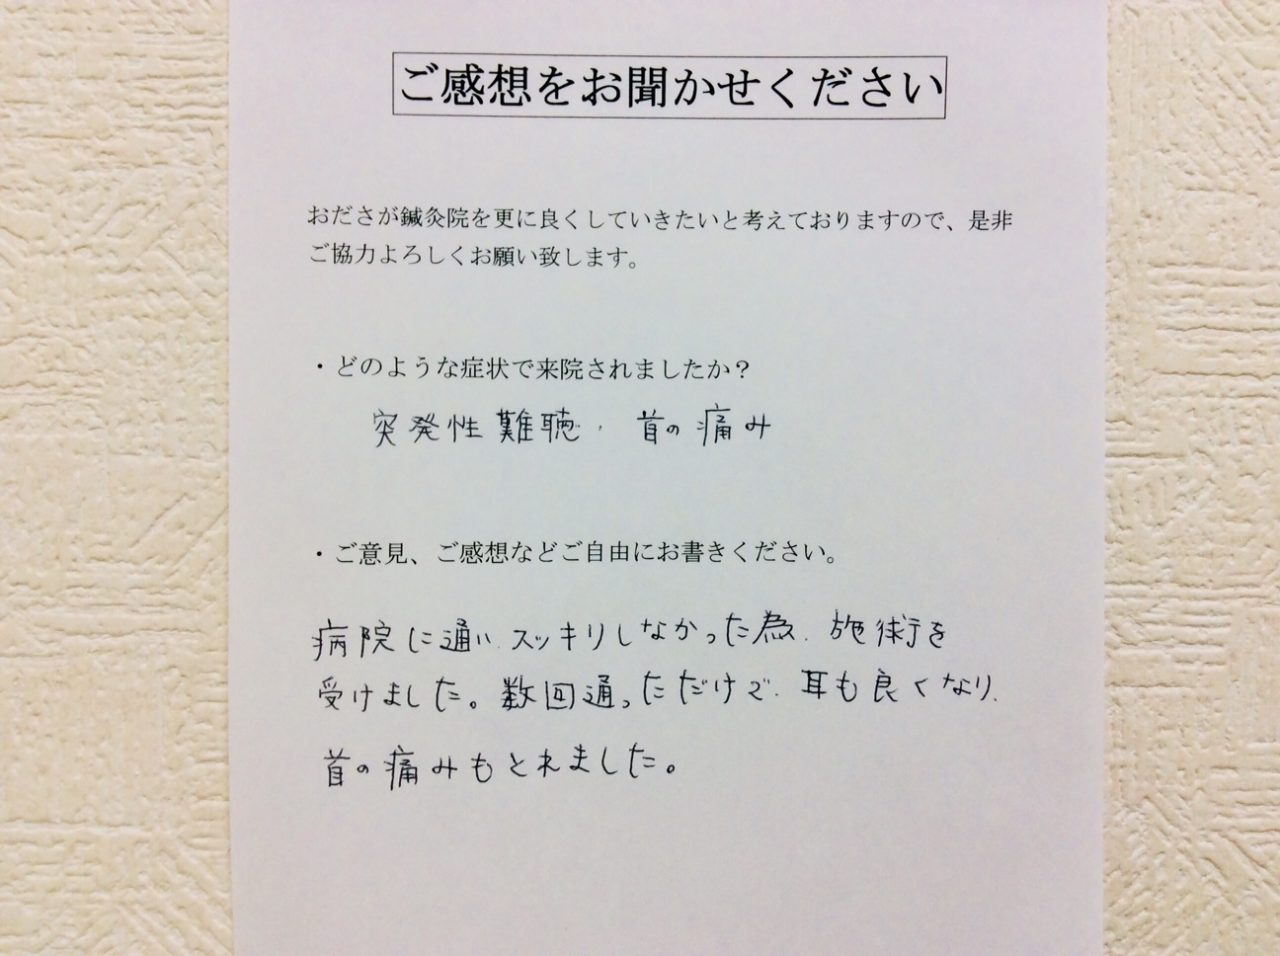 ご感想をお聞かせください
おださが鍼灸院を更に良くしていきたいと考えておりますので、是非
ご協力よろしくお願い致します。
・どのような症状で来院されましたか？
突発性難聴、首の痛み
・ご意見、ご感想などご自由にお書きください。
病院に通い、スッキリしなかった為、施術を
受けました。数回通っただけで、耳も良くなり、
首の痛みもとれました。